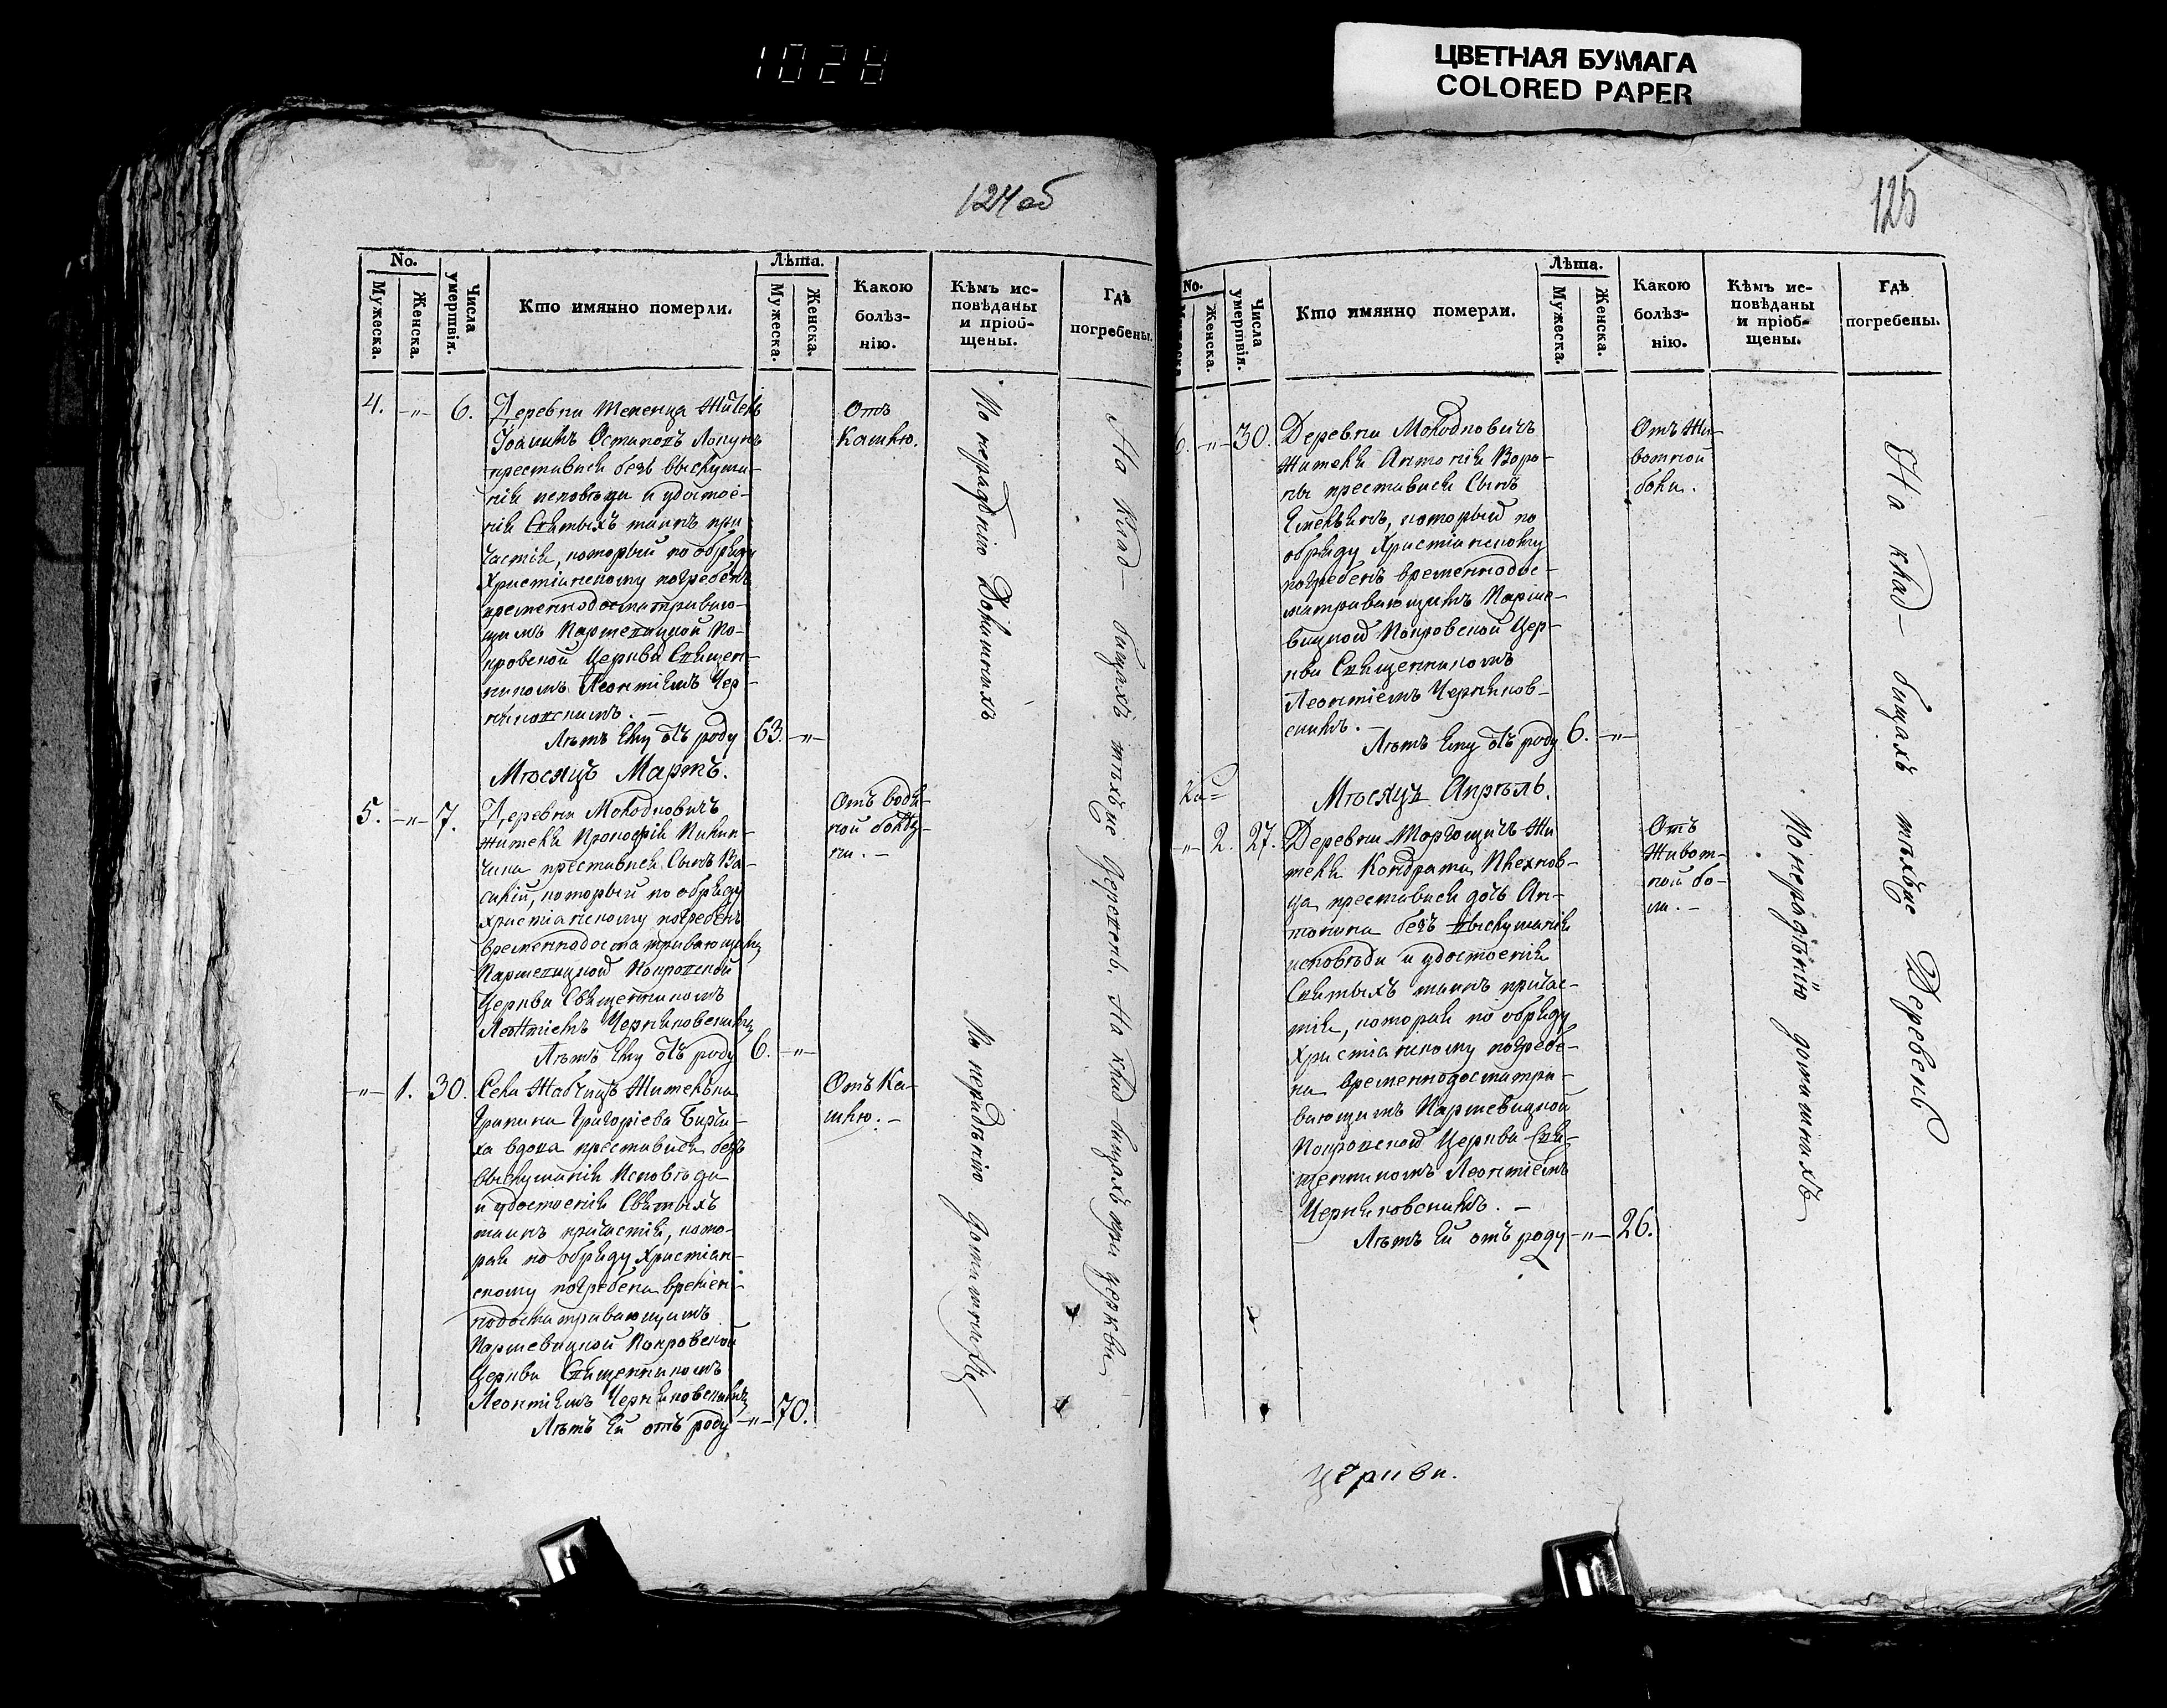 1028
ЦВЕТНАЯ БУМАГА
COLORED PAPER
124 об
No.
Мужеска.
Женска.
Числа умертвія.
Кто имянно померли.
Лѣта.
Мужеска.
Женска.
Какою
болѣз-
нію.
Кѣмъ ис-
повѣданы
и пріоб-
щены.
Гдѣ
погребены.
4. -„- 6. Деревни Житель
Іоаннъ Остаповъ
преставися безъ выслуша-
нія исповѣди и удостое-
нія Святыхъ таинъ при
частія, который по обряду
Христіанскому погребенъ
временнодосматриваю-
щимъ Паршевицкой По-
кровской Церкви Священ-
никомъ Леонтіемъ Чер-
няковскимъ. —
Лѣтъ Ему отъ роду 63. -„-
Отъ
Кашлю.
Мѣсяцъ Мартъ.
5. -„- 7. Деревни Молодковичъ
Жителя Прокофія
преставися Сынъ Ва-
силій, который по обряду
Христіанскому погребенъ
временнодосматривающимъ
Паршевицкой Покровской
Церкви Священникомъ
Леонтіемъ Черняковскимъ
Лѣтъ Ему отъ роду 6. -„-
Отъ водя-
ной болѣз-
ни. —
-„- 1. 30. Села Жабчицъ Жителька
Григоріева
вдова преставися безъ
выслушанія Исповѣди
и удостоенія Святыхъ
таинъ причастія, кото-
рая по обряду Христіан-
скому погребена времен-
нодосматривающимъ
Паршевицкой Покровской
Церкви Священникомъ
Леонтіемъ Черняковскимъ
Лѣтъ Ей отъ роду -„- 70.
Отъ Ка-
шлю. —
По нерадѣнію Домашнихъ
По нерадѣнію домашнихъ
На клад- бищахъ тѣхже Деревень. На клад-бищахъ при церкви
125
No.
Женска.
Числа умертвія.
Кто имянно померли.
Лѣта.
Мужеска.
Женска.
Какою
болѣз-
нію.
Кѣмъ ис-
повѣданы
и пріоб-
щены.
Гдѣ
погребены.
6. -„- 30. Деревни Молодковичъ
Жителя Антонія Воро-
ны преставися Сынъ
Емельянъ, который по
обряду Христіанскому
погребенъ временнодос-
матривающимъ Парше-
вицкой Покровской Цер-
кви Священникомъ
Леонтіемъ Черняков-
скимъ. —
Лѣтъ Ему отъ роду 6. -„-
Отъ Жи-
вотной
боли.
Мѣсяцъ Апрѣль.
-„- 2. 27. Деревни Жи
теля Кондрата
преставися дочь Ан-
тонина безъ выслушанія
исповѣди и удостоенія
Святыхъ таинъ причас-
тія, которая по обряду
Христіанскому погребе-
на временнодосматри-
вающимъ Паршевицкой
Покровской Церкви Свя-
щенникомъ Леонтіемъ
Черняковскимъ. —
Лѣтъ Ей отъ роду -„- 26.
Отъ
Живот-
ной бо-
ли. —
По нерадѣнію домашнихъ
На клад- бищахъ тѣхже Деревень
Церкви.